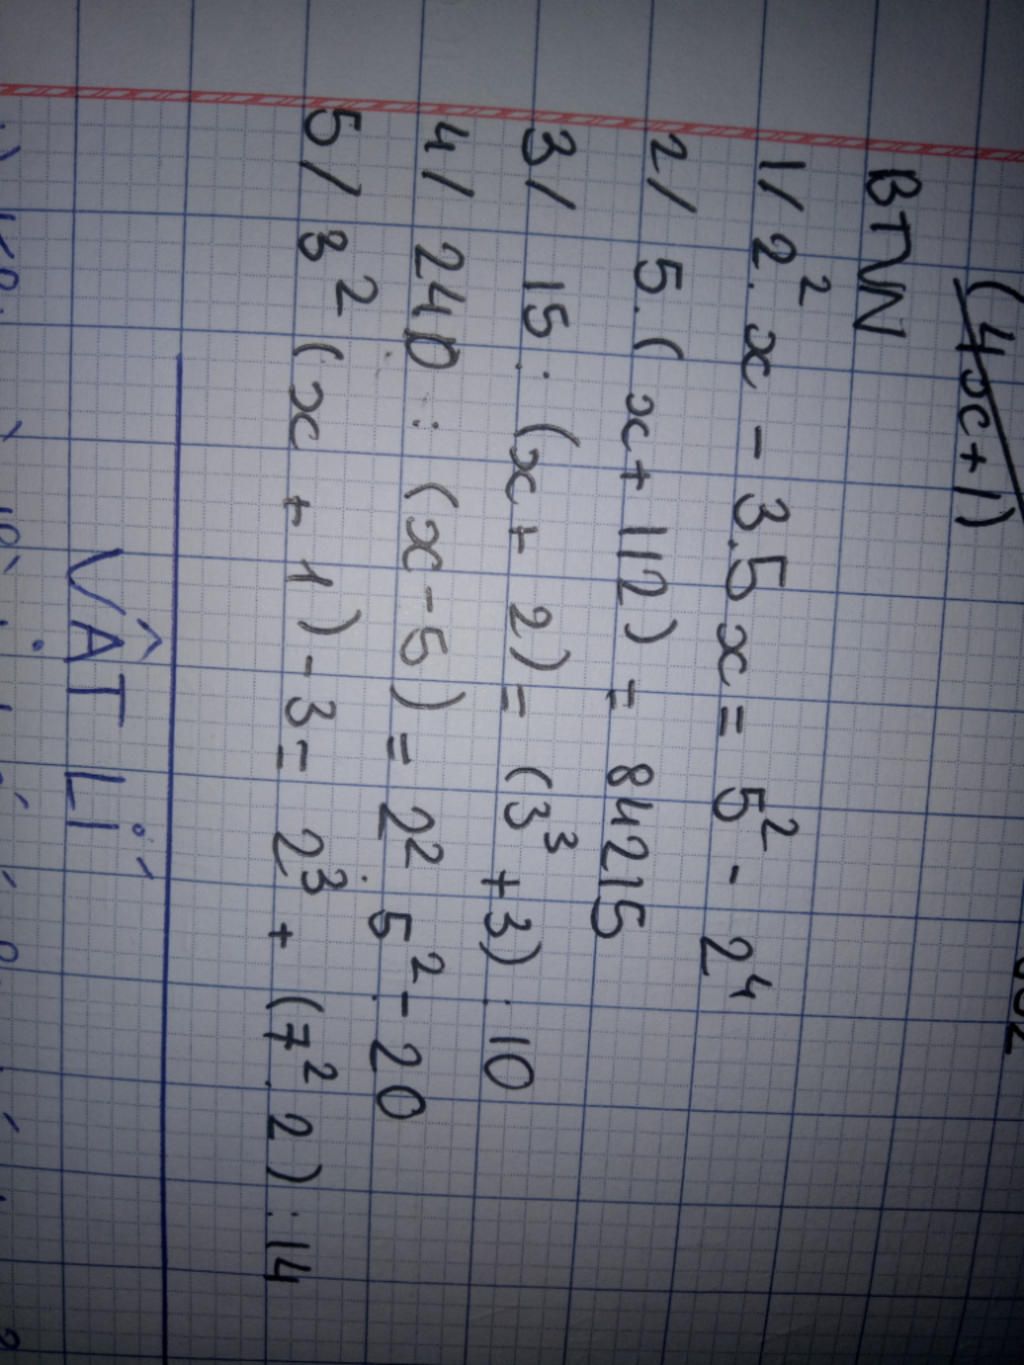 (4x+1)
BTVN
1/ 2². x - 3.5x = 5² - 2⁴
2/ 5.( x+ 112) = 84215
3/ 15 : (x+ 2) = (3³ +3) : 10
4/ 240 : (x-5) = 2² . 5² - 20
5/ 3² (x + 1) - 3 = 2³ + (7² . 2) : 14
VẬT LÍ